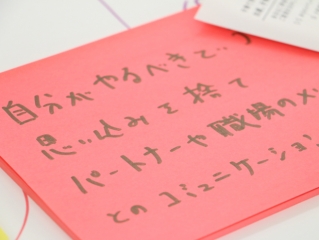 自分がやるべきで
思い込みを捨て
パートナーや職場のメ
とのコミュニケーション